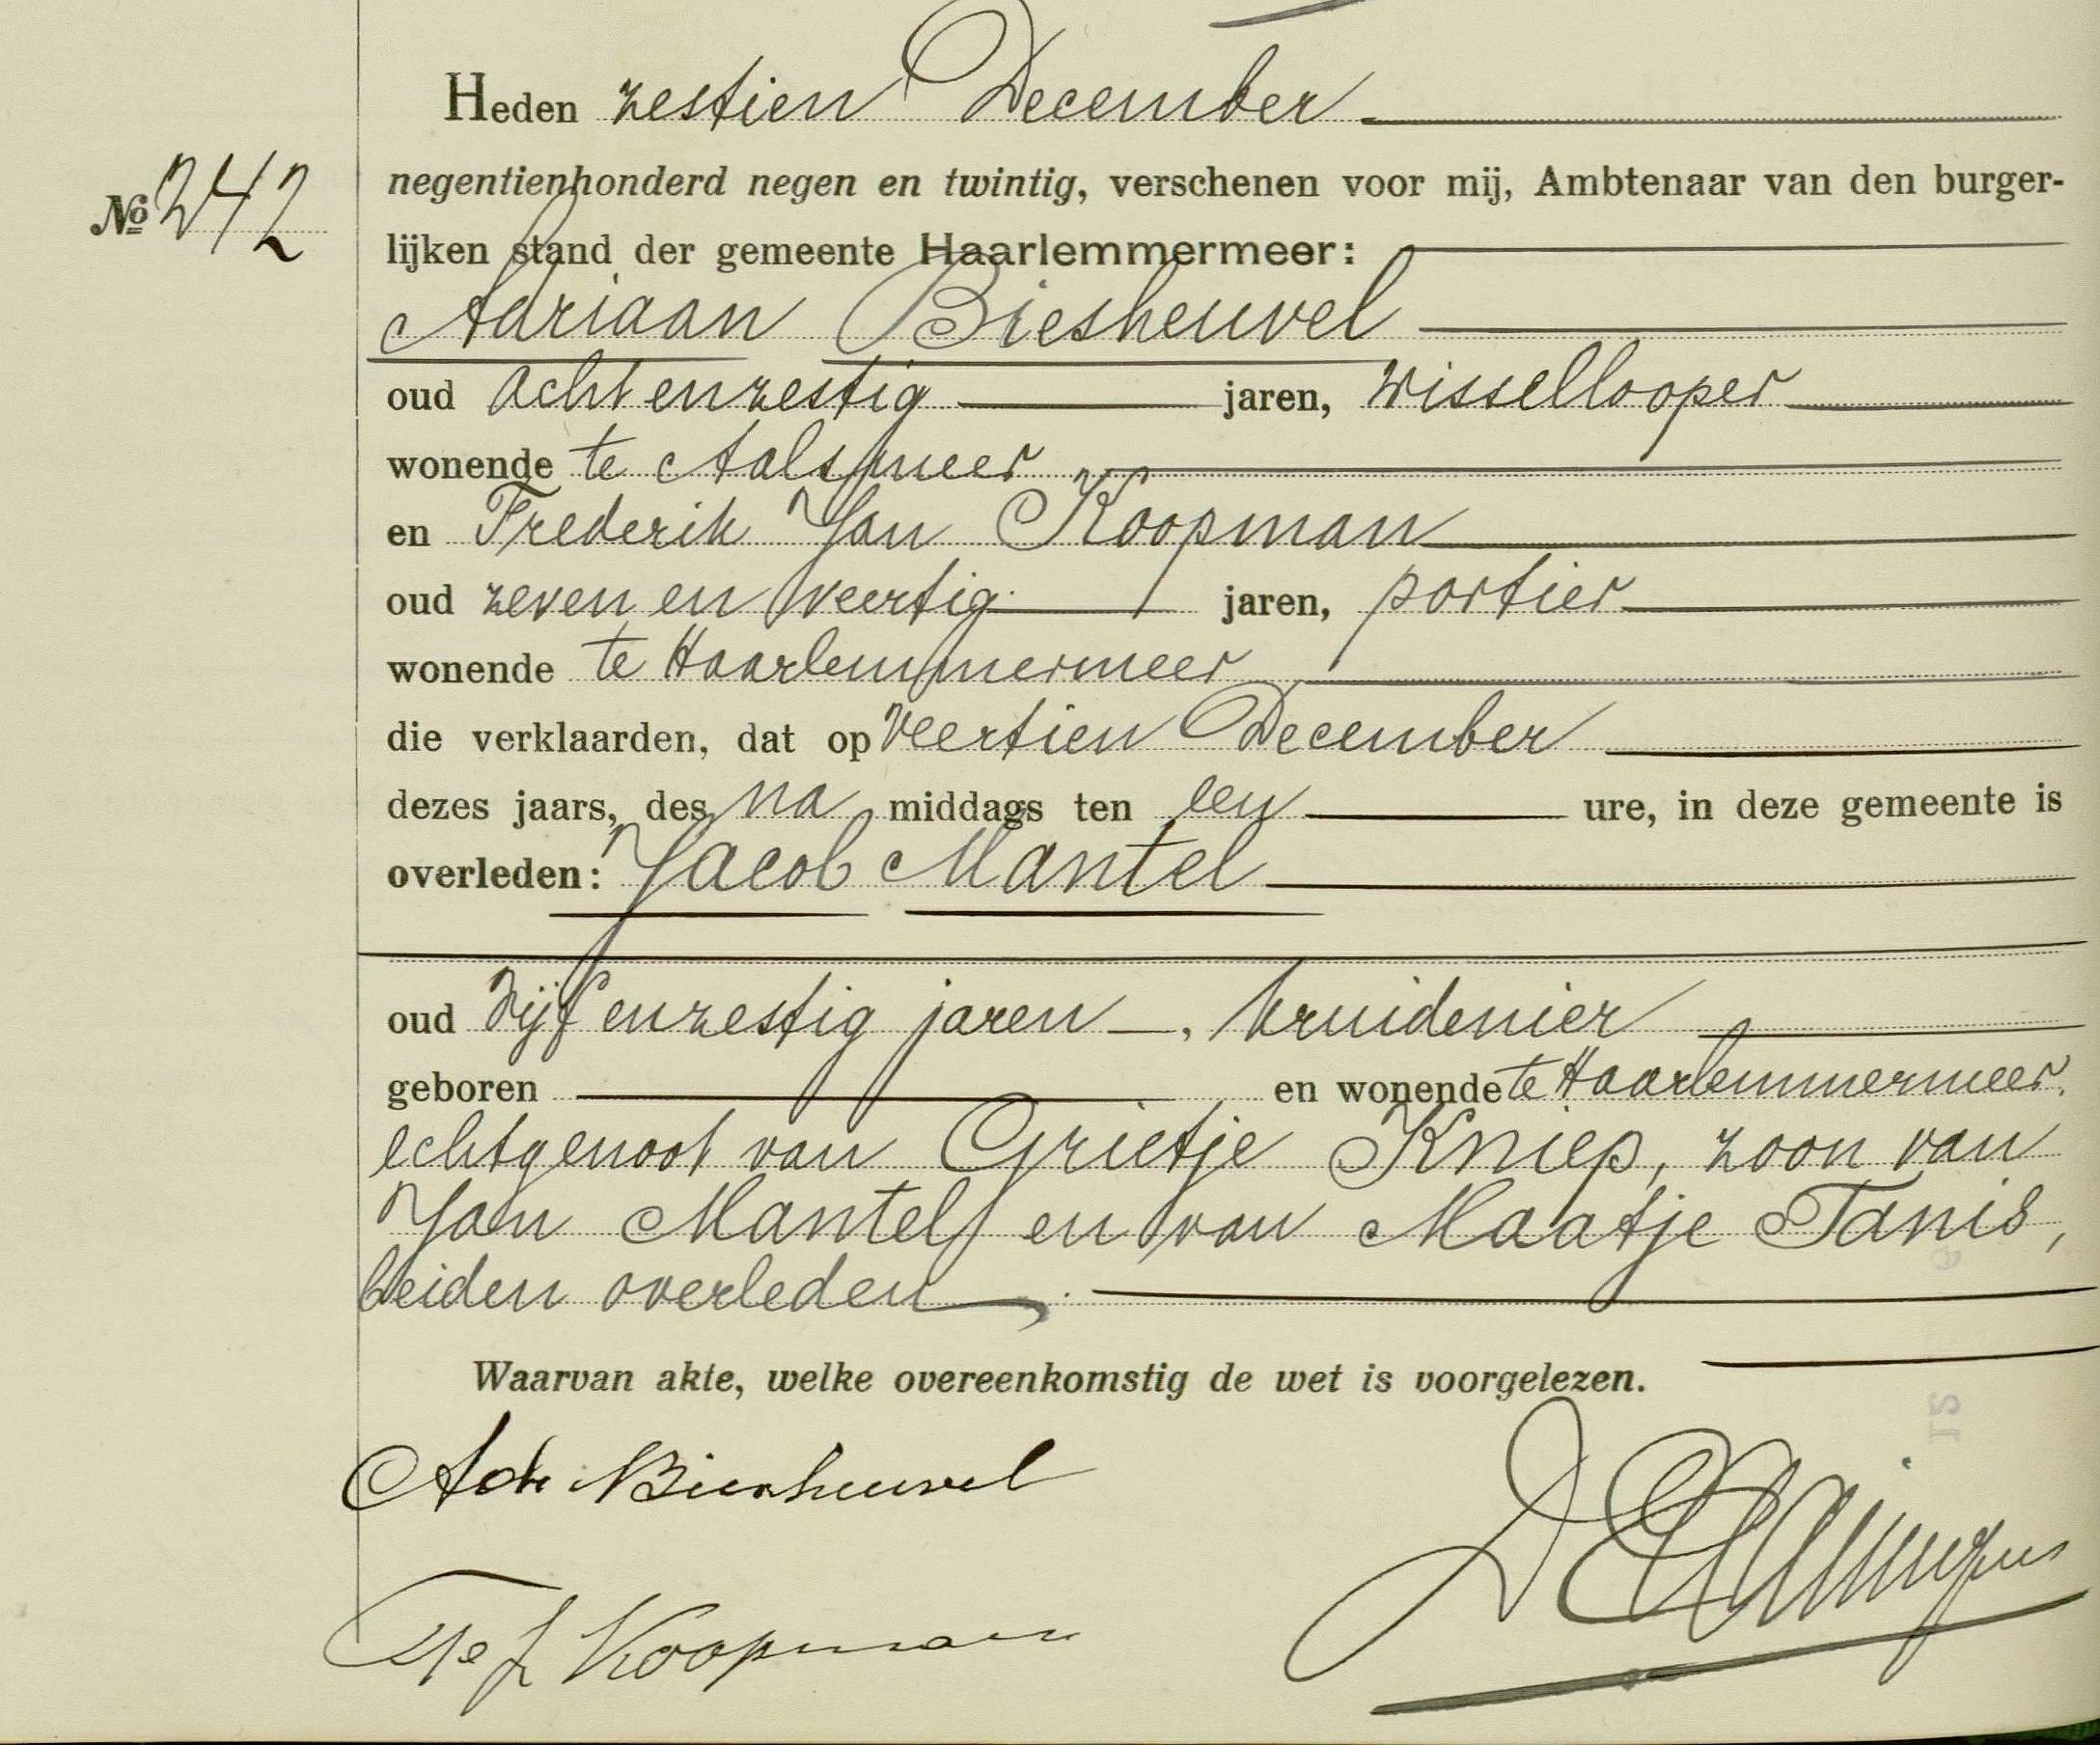 Heden zestien December
negentienhonderd negen en twintig, verschenen voor mij, Ambtenaar van den burger-
No 242
lijken stand der gemeente Haarlemmermeer:
Adriaan Biesheuvel
oud achtenzestig jaren, wissellooper
wonende te Aalsmeer
en Frederik Jan Koopman
oud zeven en veertig jaren, portier
wonende te Haarlemmermeer
die verklaarden, dat op veertien December
dezes jaars, des na middags ten een ure, in deze gemeente is
overleden: Jacob Mantel
oud vijfenzestig jaren, kruidenier
geboren en wonende te Haarlemmermeer,
echtgenoot van Grietje Kniep, zoon van
Jan Mantel en van Maatje Tanis,
beiden overleden.
Waarvan akte, welke overeenkomstig de wet is voorgelezen.
Adr Biesheuvel
F J Koopman